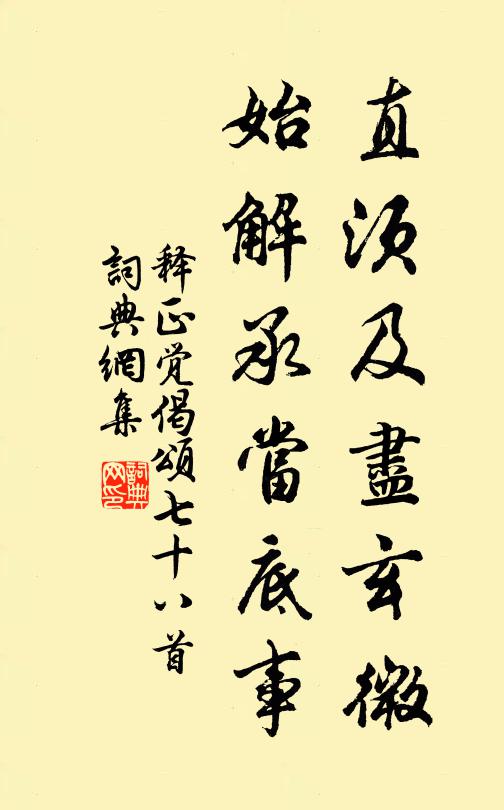 直須及盡玄微
始解承當底事
释正觉偈頌七十八首
詞典網集
詞典网印